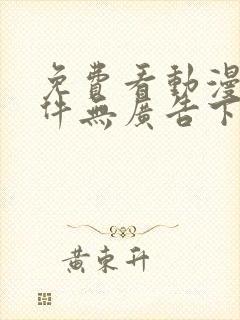 免費看動漫
件無廣告下
黃東升